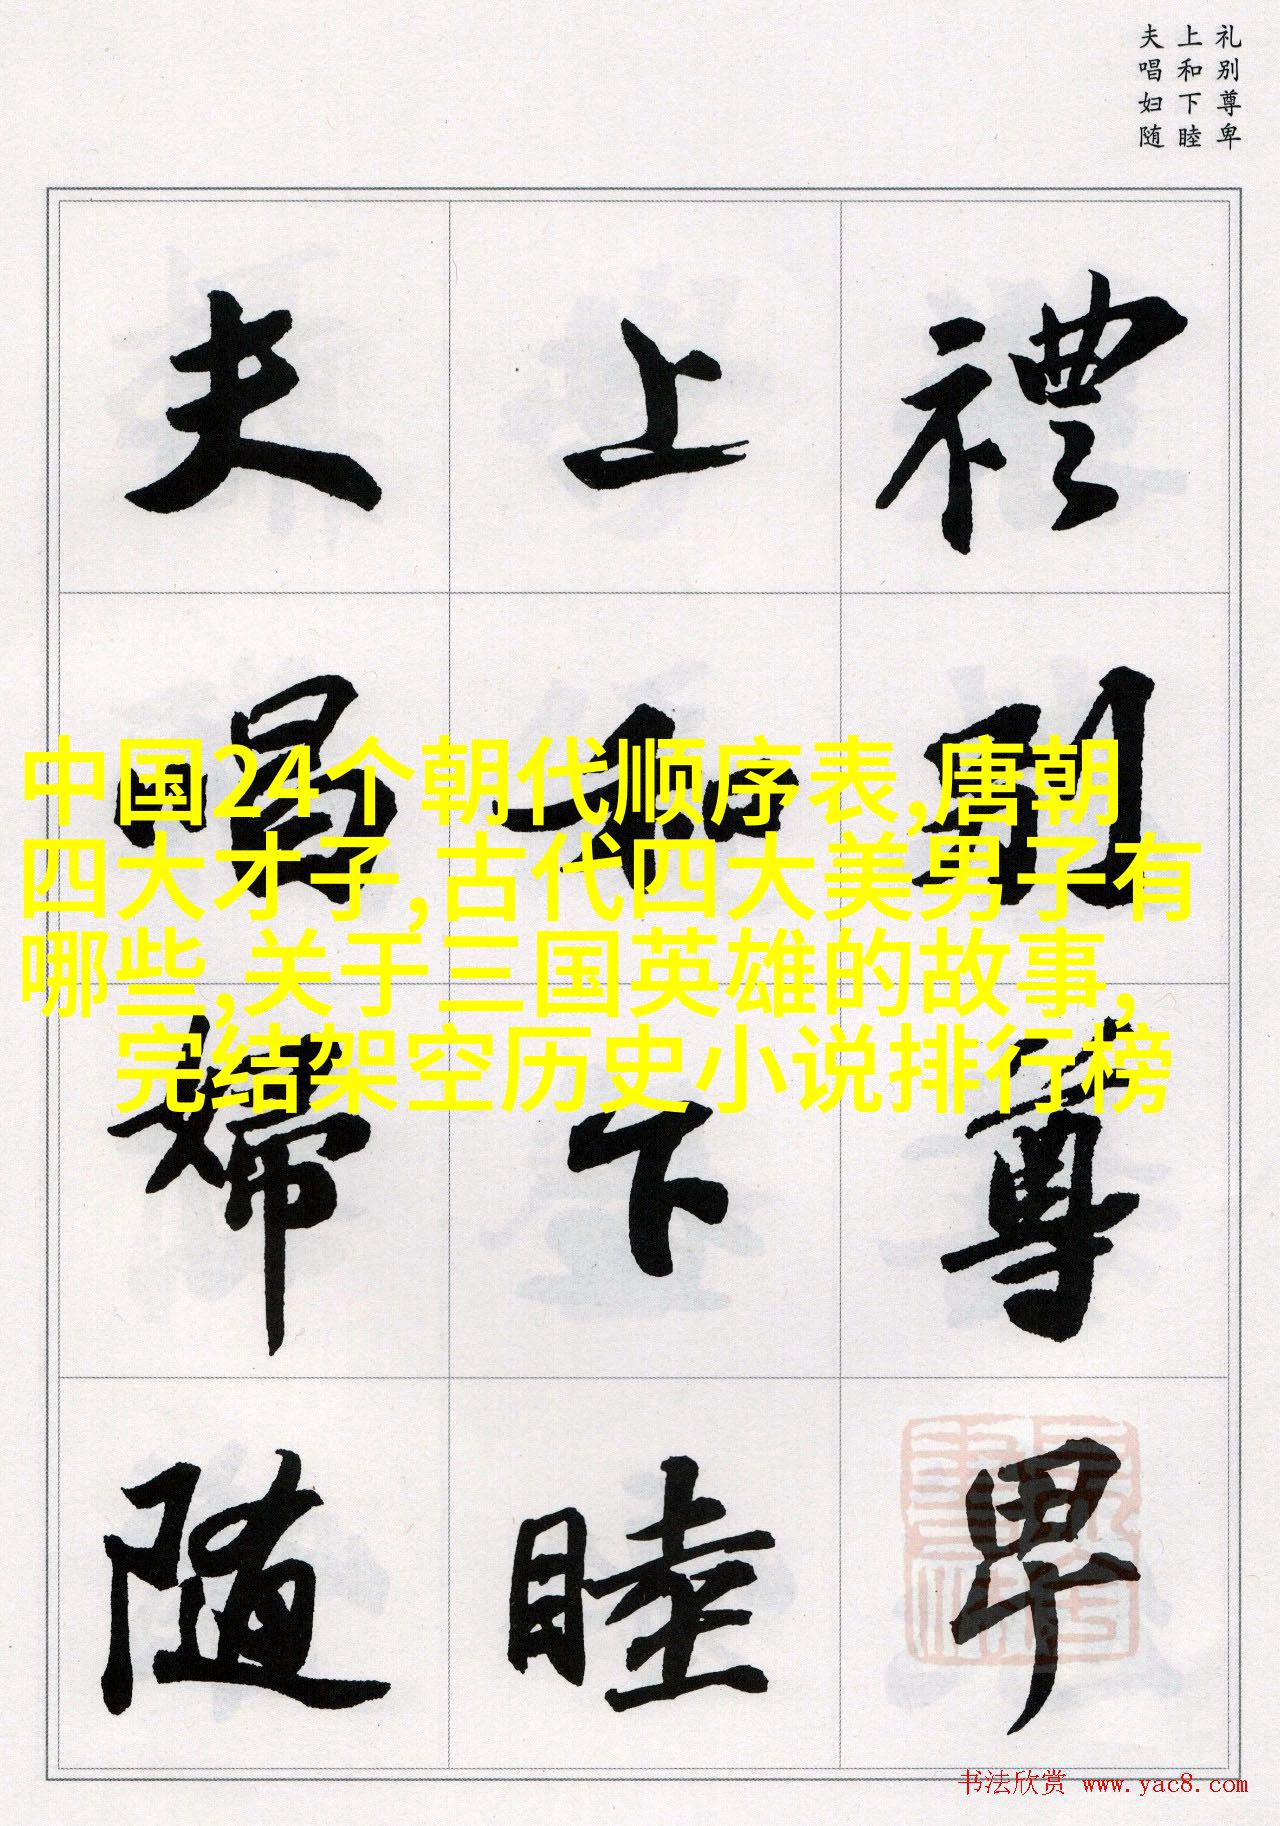 礼别尊卑
上和下睦
夫唱妇随
禮别尊卑
上和下睦
夫唱婦随
中国24个朝代顺序表,唐朝
四大才子,古代四大美男子有
哪些,关于三国英雄的故事,
完结架空历史小说排行榜
书法欣赏 www.yac8.com